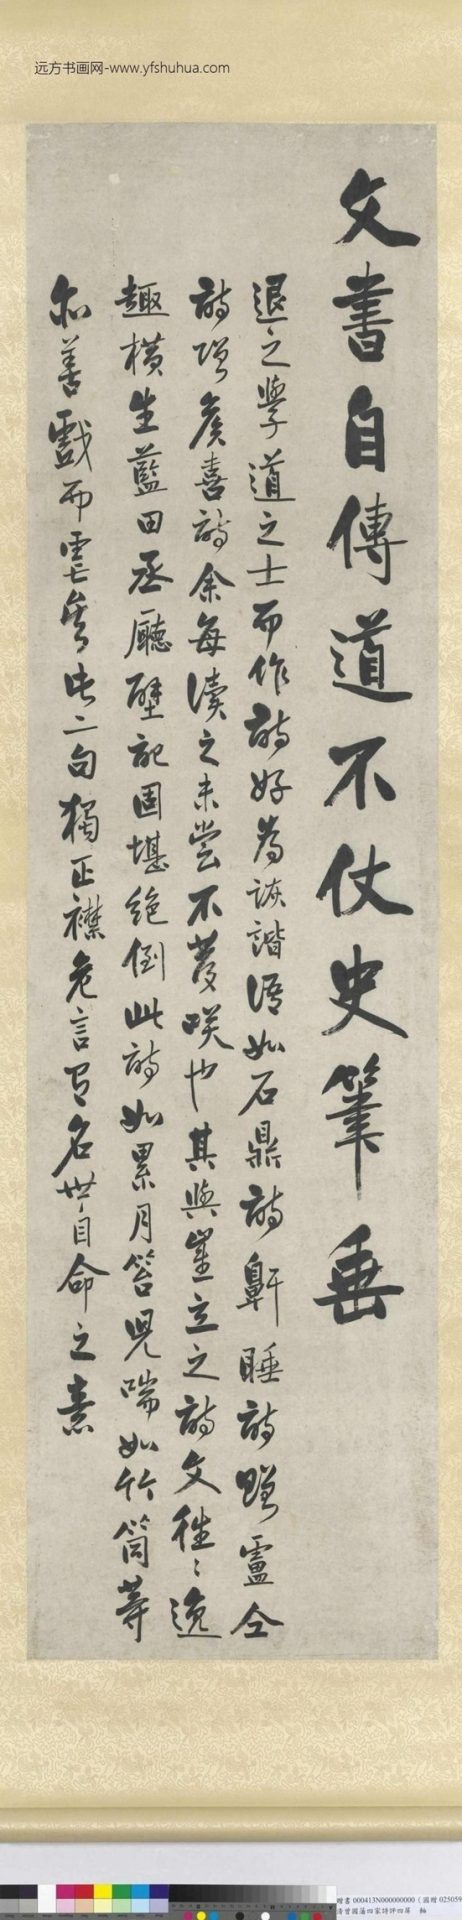 远方书画网-www.yfshuhua.com
文書自傳道不仗史筆垂
退之學道之士而作詩好為詼諧語如石鼎詩鼾睡詩贈盧仝
詩贈侯喜詩余每讀之未嘗不發咲也其與崔立之詩文往往逸
趣橫生藍田丞廳壁記固堪絕倒此詩如累月笞兒喘如竹筒等
亦善戲而虐矣此二句獨正襟危言有名世自命之素
贈書000413N000000000（國贈025059
清曾國藩四家詩評四屏 軸